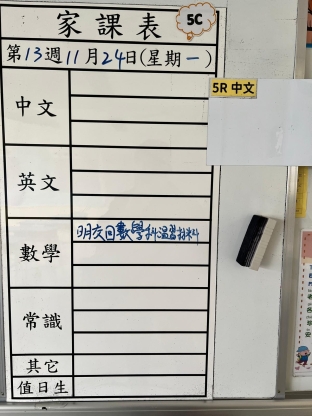 家課表
5C
第13週11月24日(星期一)
5R 中文
中文
英文
數學
明交回數學科溫習材料
常識
其它
值日生